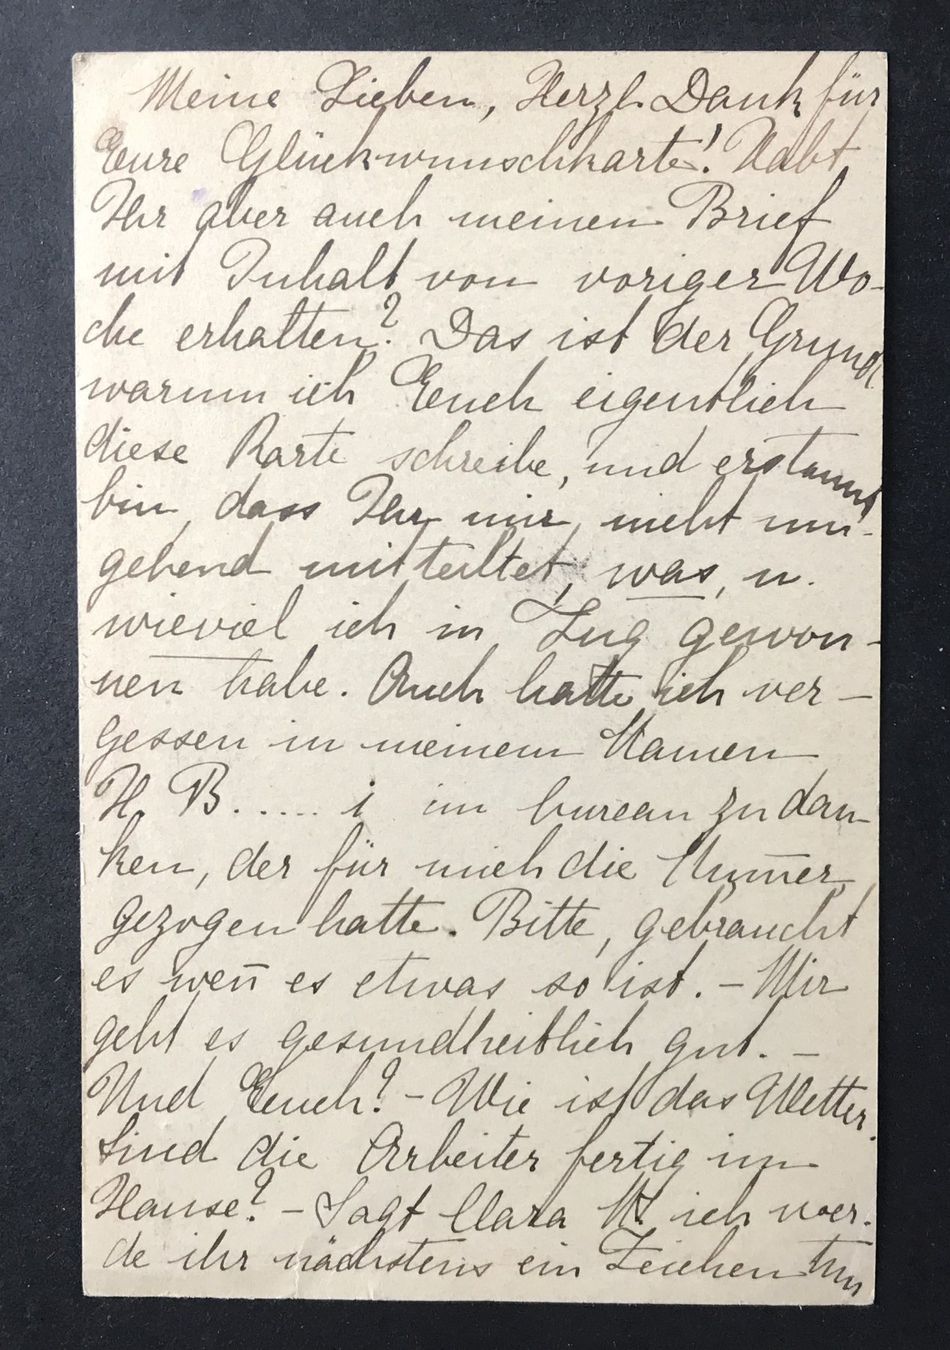 Meine Lieben, Herzl. Dank für
Eure Glückwunschkarte! Habt
Ihr aber auch meinen Brief
mit Inhalt von voriger Wo-
che erhalten? Das ist der Grund
warum ich Euch eigentlich
diese Karte schreibe, und erstaunt
bin, dass Ihr mir nicht um-
gehend mitteiltet, was, u.
wieviel ich in Zug gewon-
nen habe. Auch hatte ich ver-
gessen in meinem Namen
H. B..... i im bureau zu dan-
ken, der für mich die Num̅er
gezogen hatte. Bitte, gebraucht
es wen̅ es etwas so ist. – Mir
geht es gesundheitlich gut. –
Und Euch? – Wie ist das Wetter.
Sind die Arbeiter fertig im
Hause? – Sagt Clara M. ich wer-
de ihr nächstens ein Zeichen tun